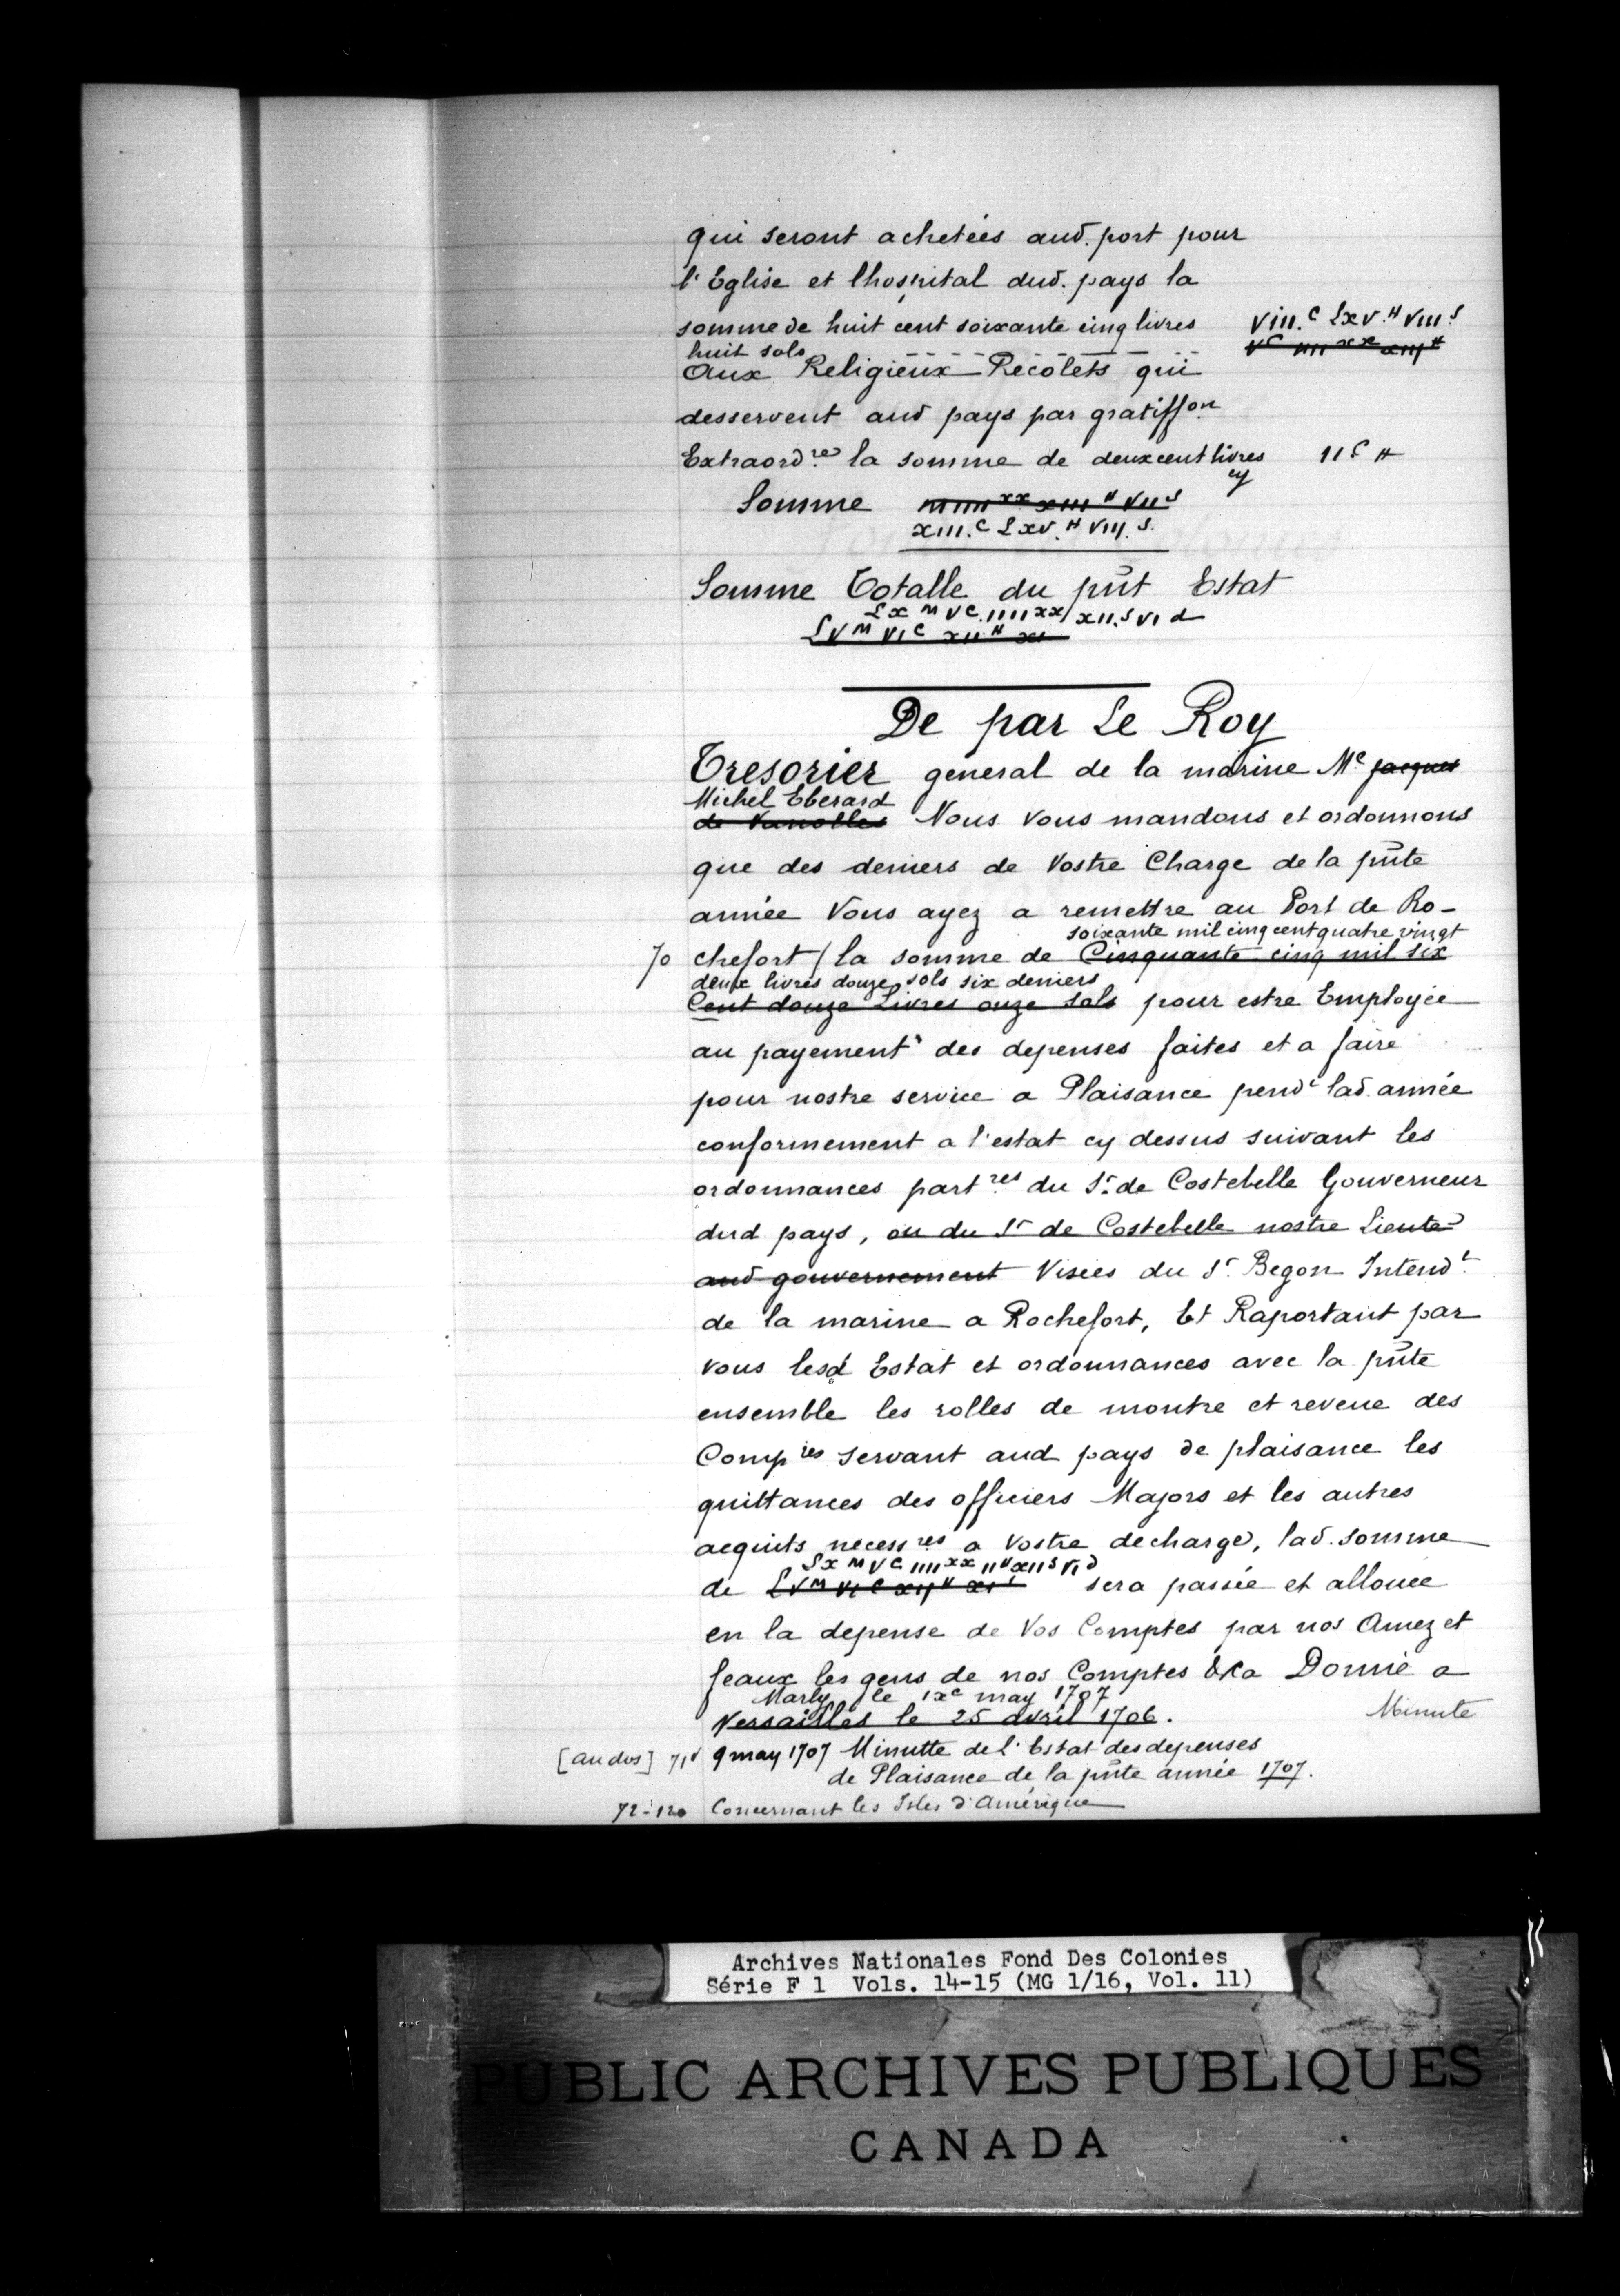 qui seront achetées aud. port pour
l'Eglise et lhospital dud. pays la
somme de huit cent soixante cinq livres VIII.C LXV.# VIII.S
huit sols VC IIIIXX XIII#
Aux Religieux Recolets qui
desservent aud pays par gratiffon
Extraordres la somme de deux cent livres cy IIC #
Somme XIII# VIIS
XIII.C LXV.# VIII.S.
Somme Totalle du pñt Estat
LXM VC. IIIIXX/XII.S VI d
LVM VIC XII# XI
De par Le Roy
Tresorier general de la marine Me Jacques
Michel Eberard
de Vanolles Nous vous mandons et ordonnons
que des deniers de Vostre Charge de la pñte
année Vous ayez a remettre au Port de Ro-
soixante mil cinq cent quatre vingt
70 chefort / la somme de Cinquante cinq mil six
deux livres douze sols six deniers
Cent douze Livres onze sols pour estre Employée
au payement des depenses faites et a faire
pour nostre service a Plaisance pendt lad. année
conformement a l'estat cy dessus suivant les
ordonnances partres du Sr. de Costebelle Gouverneur
dud pays, ou du Sr de Costebelle nostre Lieute
aud gouvernement Visées du Sr. Begon Intendt.
de la marine a Rochefort, Et Raportant par
vous lesd Estat et ordonnances avec la pñte
ensemble les rolles de montre et reveue des
Compies servant aud pays de plaisance les
quittances des officiers Majors et les autres
acquits necessres a Vostre decharge, lad. somme
LXMVC IIIIXX II# XIIS VId
de LVM VIC XII# XIS sera passée et allouée
en la depense de Vos Comptes par nos Amez et
feaux les gens de nos Comptes &Ca Donné a
Marly le IXe may 1707
Versailles le 25 avril 1706. Minute
[au dos] 71v 9 may 1707 Minutte de l'Estat des depenses
de Plaisance de la pñte année 1707.
72-120 Concernant les Isles d'Amérique
Archives Nationales Fond Des Colonies
Série F 1 Vols. 14-15 (MG 1/16, Vol. 11)
PUBLIC ARCHIVES PUBLIQUES
CANADA